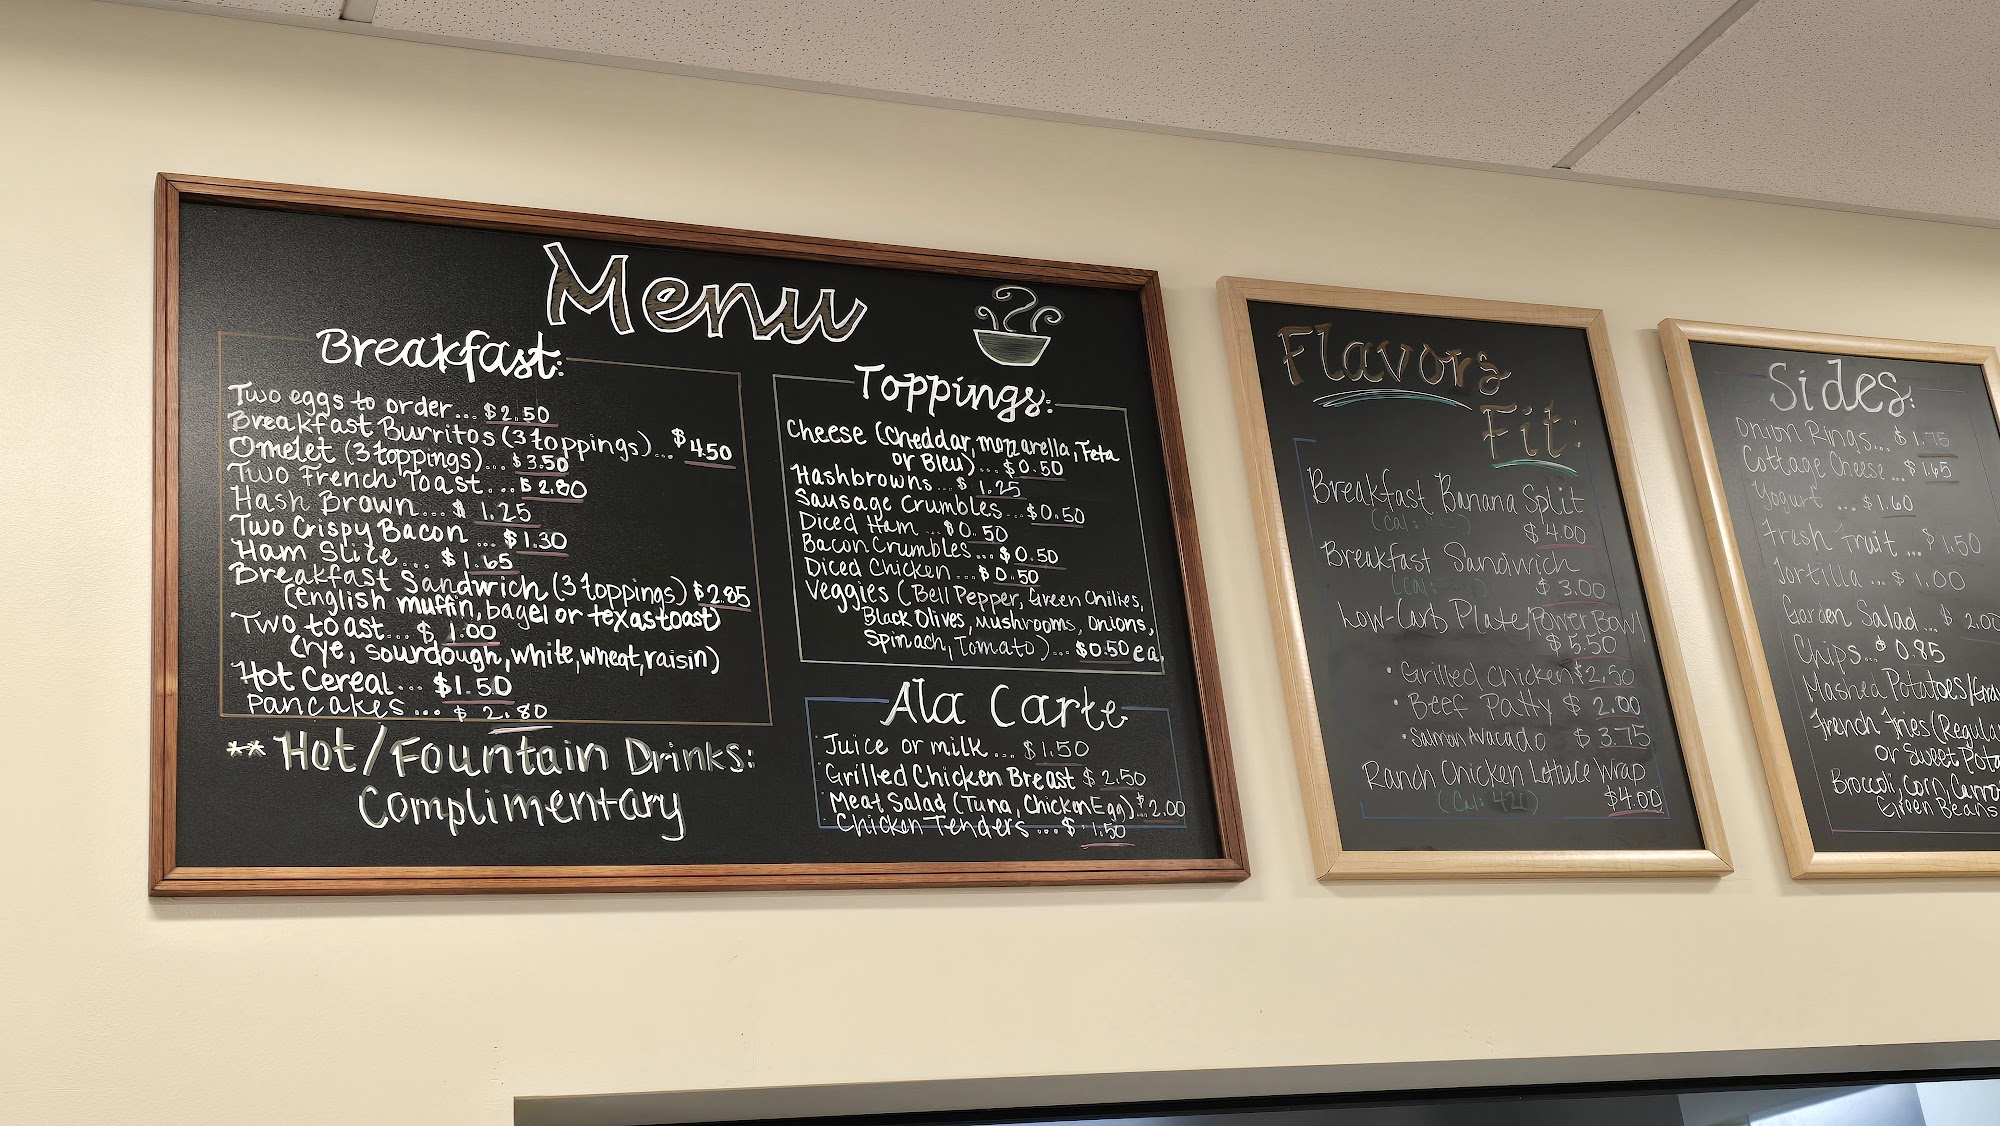 Menu
Breakfast:
Two eggs to order... $2.50
Breakfast Burritos (3 toppings)... $4.50
Omelet (3 toppings)... $3.50
Two French Toast... $2.80
Hash Brown... $1.25
Two Crispy Bacon... $1.30
Ham Slice... $1.65
Breakfast Sandwich (3 toppings) $2.85
(english muffin, bagel or texas toast)
Two toast... $1.00
(rye, sourdough, white, wheat, raisin)
Hot Cereal... $1.50
Pancakes... $2.80
**Hot/Fountain Drinks:
Complimentary
Toppings:
Cheese (Cheddar, mozzarella, Feta
or Bleu)... $0.50
Hashbrowns... $1.25
Sausage Crumbles... $0.50
Diced Ham... $0.50
Bacon Crumbles... $0.50
Diced Chicken... $0.50
Veggies (Bell Pepper, Green Chilies,
Black Olives, Mushrooms, Onions,
Spinach, Tomato)... $0.50 ea.
Ala Carte
Juice or milk... $1.50
Grilled Chicken Breast $2.50
Meat Salad (Tuna, Chicken Egg)... $2.00
Chicken Tenders... $1.50
Flavors
Fit:
Breakfast Banana Split
(Cal:
$4.00
Breakfast Sandwich
(Cal:
$3.00
Low-Carb Plate/Power Bowl
$5.50
• Grilled Chicken $2.50
• Beef Patty $2.00
• Salmon Avacado $3.75
Ranch Chicken Lettuce Wrap
(Cal: 420) $4.00
Sides:
Onion Rings... $1.75
Cottage Cheese... $1.65
Yogurt... $1.60
Fresh Fruit... $1.50
Tortilla... $1.00
Garden Salad... $2.00
Chips... $0.85
Mashed Potatoes/Grav
French Fries (Regula
or Sweet Pota
Broccoli, Corn, Carro
Green Beans